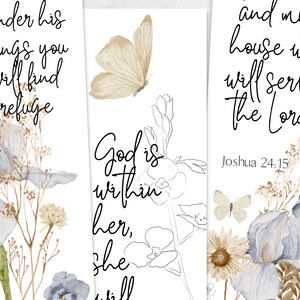 under his
wings you
will find
refuge
God is
within
her,
she
will
and m
house w
will ser
the Lor
Joshua 24.15